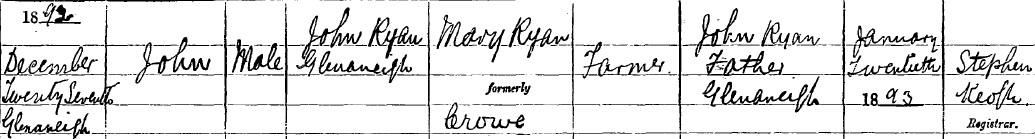 1892
December
Twenty Seventh
Glenaneigh
John
Male
John Ryan
Glenaneigh
Mary Ryan
formerly
Crowe
Farmer
John Ryan
Father
Glenaneigh
January
Twentieth
1893
Stephen
Keogh
Registrar.